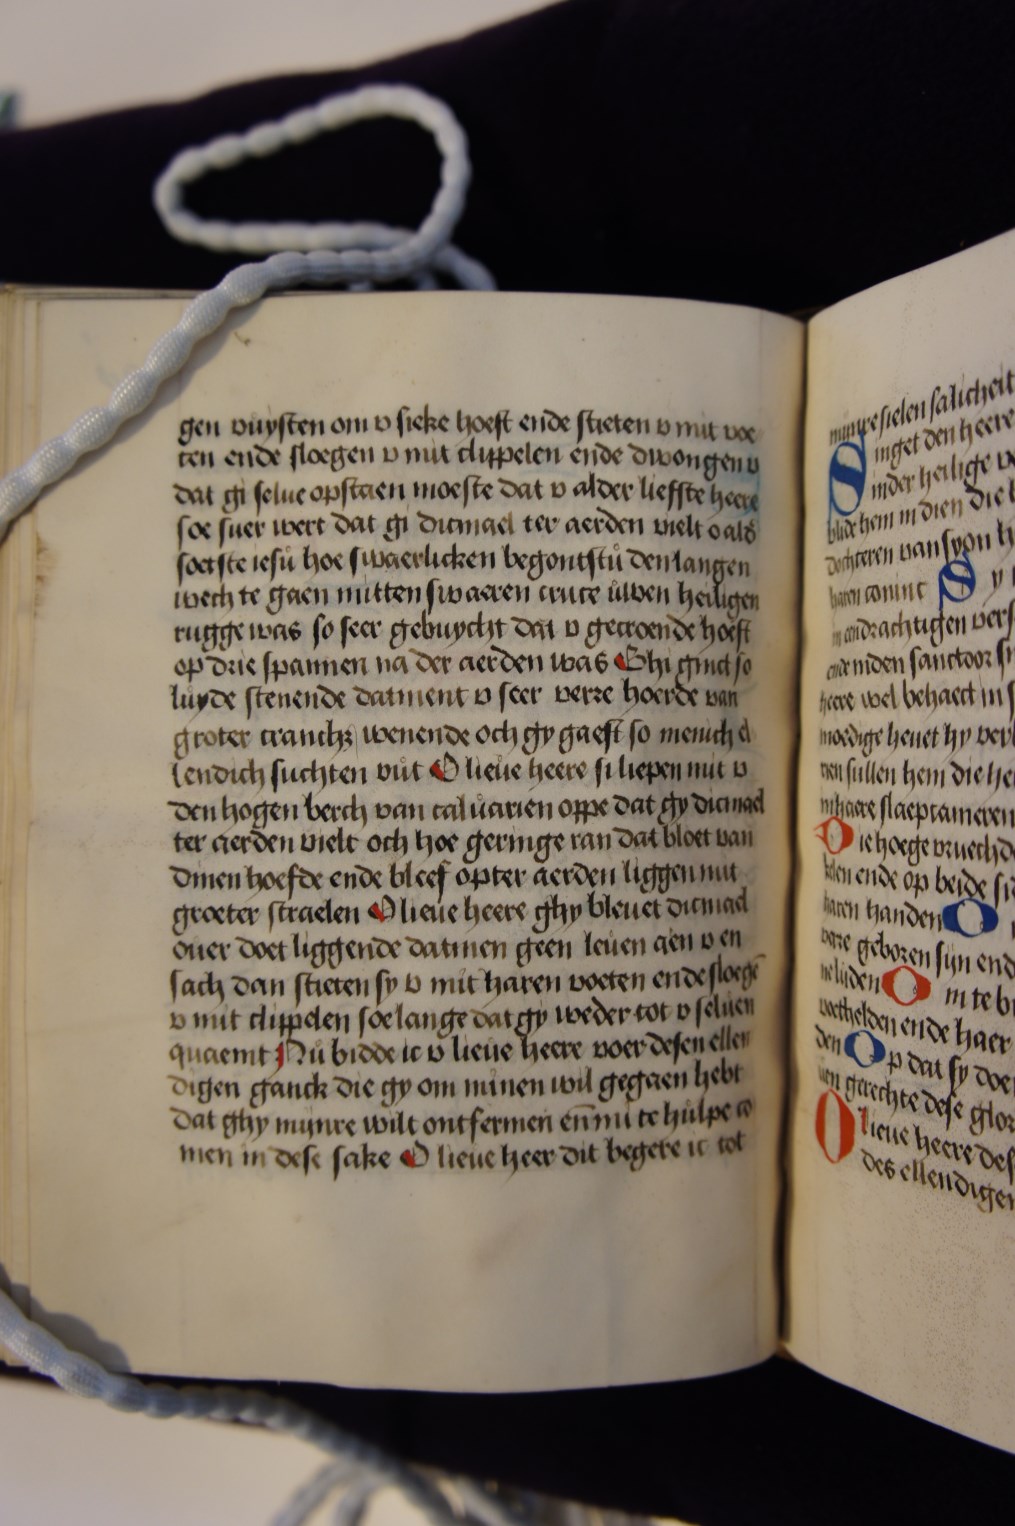 gen vuysten om v sieke hoeft ende stieten v mit voe
ten ende sloegen v mit clippelen ende dwongen v
dat gi selue opstaen moeste dat v alder liefste heere
soe suer wert dat gi dicmael ter aerden vielt o als
soetste iesu hoe swaerlicken begontstu den langen
wech te gaen mitten swaeren cruce uwen heiligen
rugge was so seer gebuycht dat v gecroende hoeft
op drie spannen na der aerden was Ghi ginct so
luyde stenende datment v seer verre hoerde van
groter wenende och gy gaeft so menich e
lendich suchten vut O lieue heere si liepen mit v
den hogen berch van caluarien oppe dat gy dicmael
ter aerden vielt och hoe geringe ran dat bloet van
dinen hoefde ende bleef opter aerden liggen mit
groeter straelen O lieue heere ghy bleuet dicmael
ouer doet liggende datmen geen leuen aen v en
sach dan stieten sy v mit haren voeten ende sloegē
v mit clippelen soe lange dat gy weder tot v seluen
quaemt Nu bidde ic v lieue heere voer desen ellen
digen ganck die gy om minen wil gegaen hebt
dat ghy mynre wilt ontfermen en̄ mi te hulpe co
men in dese sake O lieue heer dit begere ic tot
mynre sielen salicheit
Singet den heere
inder heilige
blide hem in dien die
dochteren van syon
haren coninc Sy
eendrachtigen
ende in den sanctoor
heere wel behaect in
moedige heuet hy
sullen hem die
slaepcameren
Die hoege
ende op beide
haren handen O
geboren sijn
O m te
ende haer
den Op dat sy doe
gerechte dese
O lieue heere des
des ellendigen